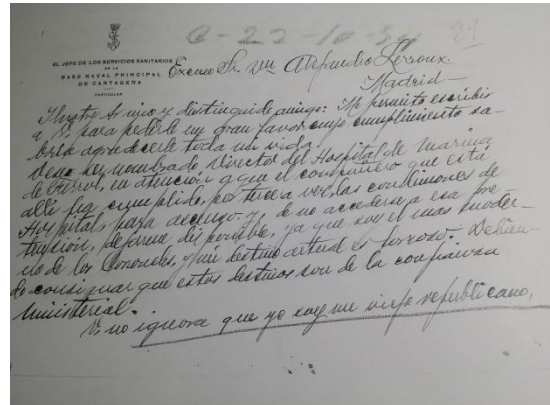 C-22-10-34 31
EL JEFE DE LOS SERVICIOS SANITARIOS
DE LA
BASE NAVAL PRINCIPAL
DE CARTAGENA
PARTICULAR
Excmo Sr. Dn Alejandro Lerroux.
Madrid—
Ilustre Sr mio y distinguido amigo: Me permito escribir
a V. para pedirle un gran favor cuyo cumplimiento sa-
bria agradecerle toda un vida.
Deseo ser nombrado Director del Hospital de Marina
de Ferrol, en atención a que el compañero que está
alli ha cumplido, por tercera vez, las condiciones de
Hospital, para ascenso y, de no acceder a esa pre-
tensión, dejarme disponible, ya que soy el mas moder-
no de los Coroneles, y mi destino actual es forzoso. Deban-
do consignar que estos destinos son de la confianza
ministerial.
V. no ignora que yo soy un viejo republicano.